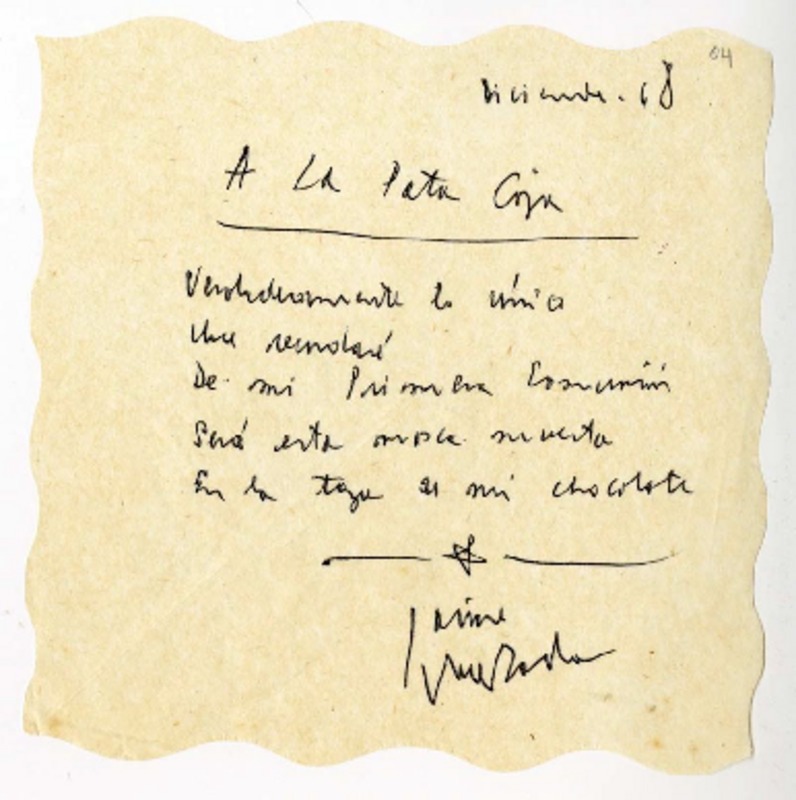 04
Diciembre . 68
A La Pata Coja
Verdaderamente lo único
Que recordaré
De mi Primera Comunión
Será esta mosca muerta
En la taza de mi chocolate
Jaime
Quezada